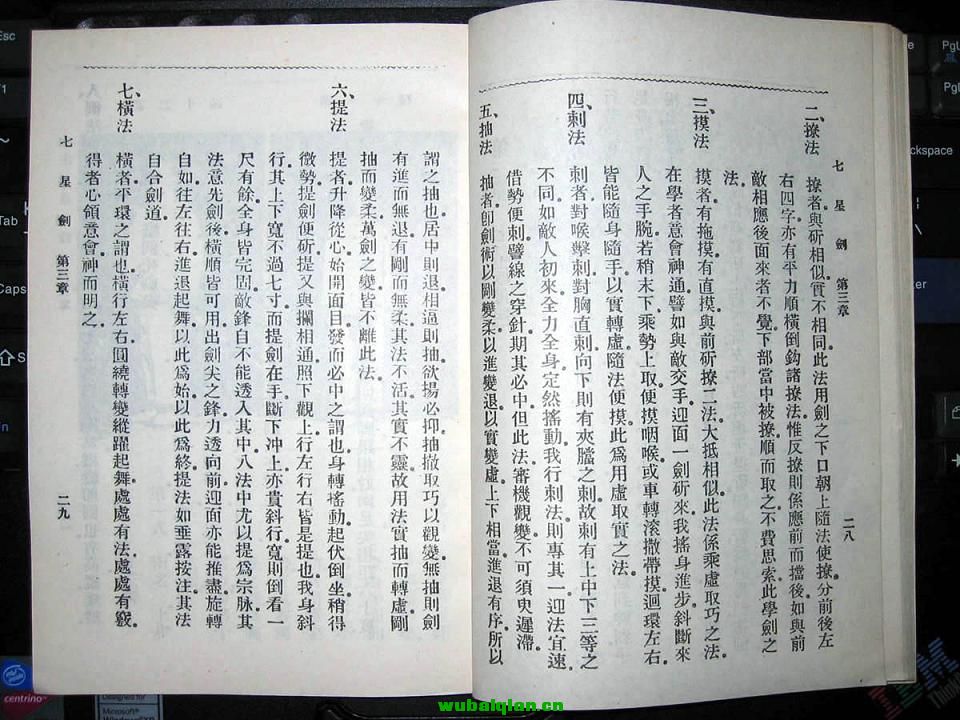 七星劍 第三章 二八
二、撩法
撩者與斫相似實不相同此法用劍之下口朝上隨法使撩。分前後左
右四字亦有平力順橫倒鈎諸撩法惟反撩則係應前而擋後如與前
敵相應後面來者不覺下部當中被撩順而取之不費思索此學劍之
法。
三、摸法
摸者有拖摸有直摸與前斫撩二法大抵相似此法係乘虛取巧之法。
在學者意會神通譬如與敵交手迎面一劍斫來我搖身進步斜斷來
人之手腕若稍末下乘勢上取便摸咽喉或車轉滾撒帶摸迴環左右。
皆能隨身隨手以實轉虛隨法便摸此爲用虛取實之法。
四、刺法
刺者對喉擊刺對胸直刺向下則有夾膽之刺故刺有上中下三等之
不同如敵人初來全力全身定然搖動我行刺法則專其一迎法宜速
借勢便刺譬線之穿針期其必中但此法審機觀變不可須臾遲滯。
五、抽法
抽者卽劍術以剛變柔以進變退以實變虛上下相當進退有序所以
七星劍 第三章 二九
謂之抽也居中則退相逼則抽欲揚必抑抽撤取巧以觀變無抽則劍
有進而無退有剛而無柔其法不活其實不靈故用法實抽而轉虛剛
抽而變柔萬劍之變皆不離此法。
六、提法
提者升降從心始開面目發而必中之謂也身轉搖動起伏倒坐稍得
微勢提劍便斫提又與攔相通照下觀上行左行右皆是提也我身斜
行其上下寬不過七寸而提劍在手斷下冲上亦貴斜行寬則倒看一
尺有餘全身皆完固敵鋒自不能透入其中八法中尤以提爲宗脉其
法意先劍後橫順皆可用出劍尖之鋒力透向前迎面亦能推盡旋轉
自如往左往右進退起舞以此爲始以此爲終提法如垂露按注其法
自合劍道。
七、橫法
橫者平環之謂也橫行左右圓繞轉變縱躍起舞處處有法處處有竅。
得者心領意會神而明之
wubaiqian.cn
Esc
PgU
PgD
Backspace
Tab
Caps
Fn
IBM
intel
centrino
Microsoft